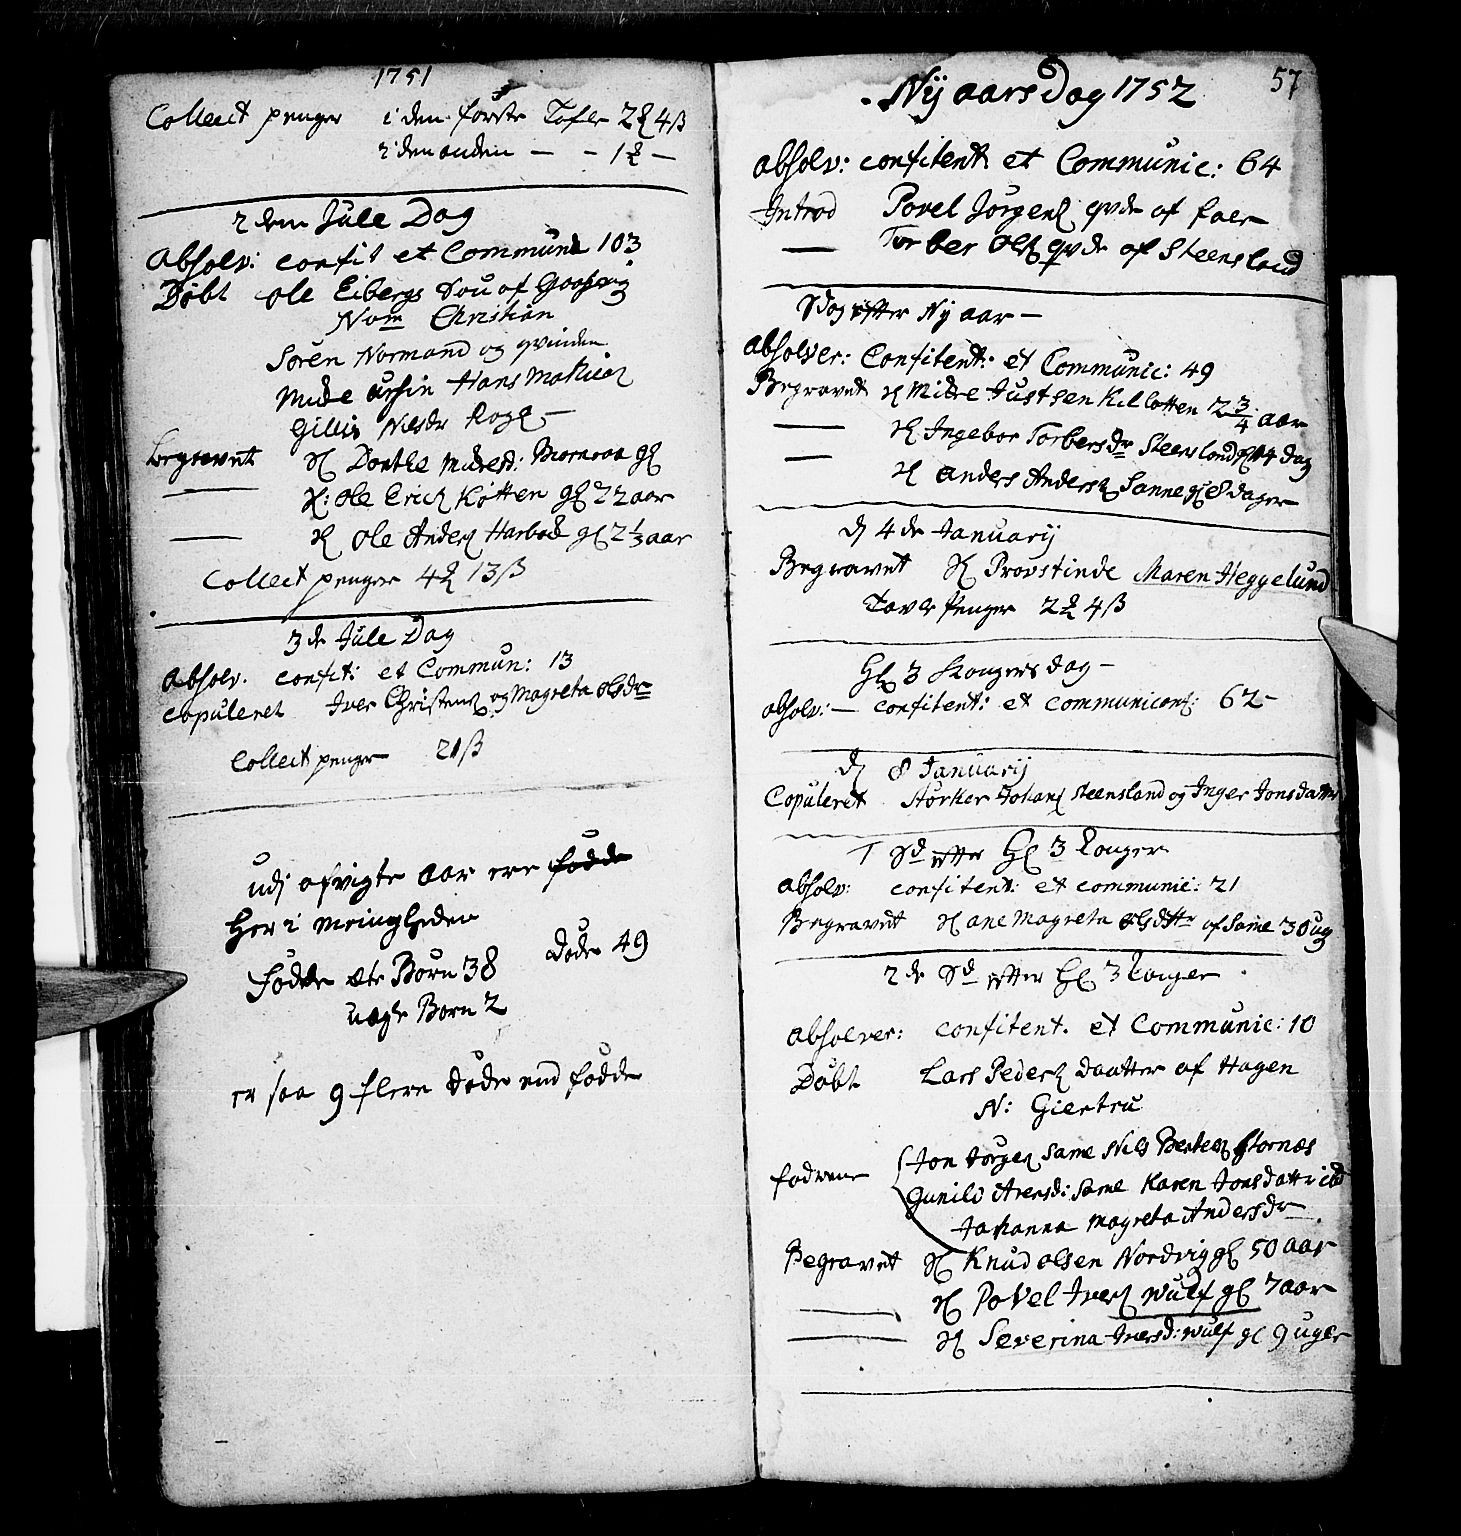 1751
Collect penger i den første Tafle 2 4 ß
i den anden — — 1 —
2 den Jule Dag
Absolv: confit et Commune 103
Døbt Ole Eibergs Sou af
Nom Christian
Søren Normand og qvinden
Mette Hans Mathias
Gillis Nilsdr
Begravet Dorthe gl
— Ole Erich Kotten gl 22 aar
— Ole Anders Harbod gl 2 1/3 aar
Collect penger 4 13 ß
3 de Jule Dag
Absolv. confit: et Commun: 13
Copuleret Iver Christens og Magreta Olsdr
Collect penger 21 ß
udj afvigte aar ere
Her i Meingheden
Fødde ete Børn 38 døde 49
uegte Børn 2
er saa 9 flere døde end fødde
57
Nÿ aars Dag 1752
Absolv: confitent et Communic: 64
Introd Povel Jørgens qvde af
— Torber Ols qvde af Steensland
Sdag efter Nÿ aar —
Absolver: Confitent: et Communic: 49
Begravet Justsen Kilbotten 2 3/4 aar
— Ingebor Torbersdr Steensland gl 14 dag
— Anders Anders Sanne gl 8 dager
d 4 de Januarÿ
Begravet Provstinde Maren Heggelund
Tavle Penger 2 4 ß
Hel 3 Kongers dag —
Absolv: — confitent: et communicant: 62 —
d 8 Januarÿ
Copuleret Størker Johans Steensland og Inger Jonsdatter
1 Sd efter Hel 3 konger
Absolv: confitent: et communic: 21
Begravet ane Magreta Olsdttr af Same 3 Uug
2 de Sd efter Hel 3 konger
Absolver: confitent. et Communic: 10
Døbt Lars Peders Daatter af Hagen
N: Giertru
fadrene Jon Jørgens Same Nils Bertels Stornæs
Gunild Iversd: Same Karen Jonsdattr ibd
Johanna Magreta Andersdr
Begravet Knud Olsen Nordvig gl 50 aar
— Povel Ivers Wulf gl 7 aar
— Severina Iversd: Wulf gl 9 uger